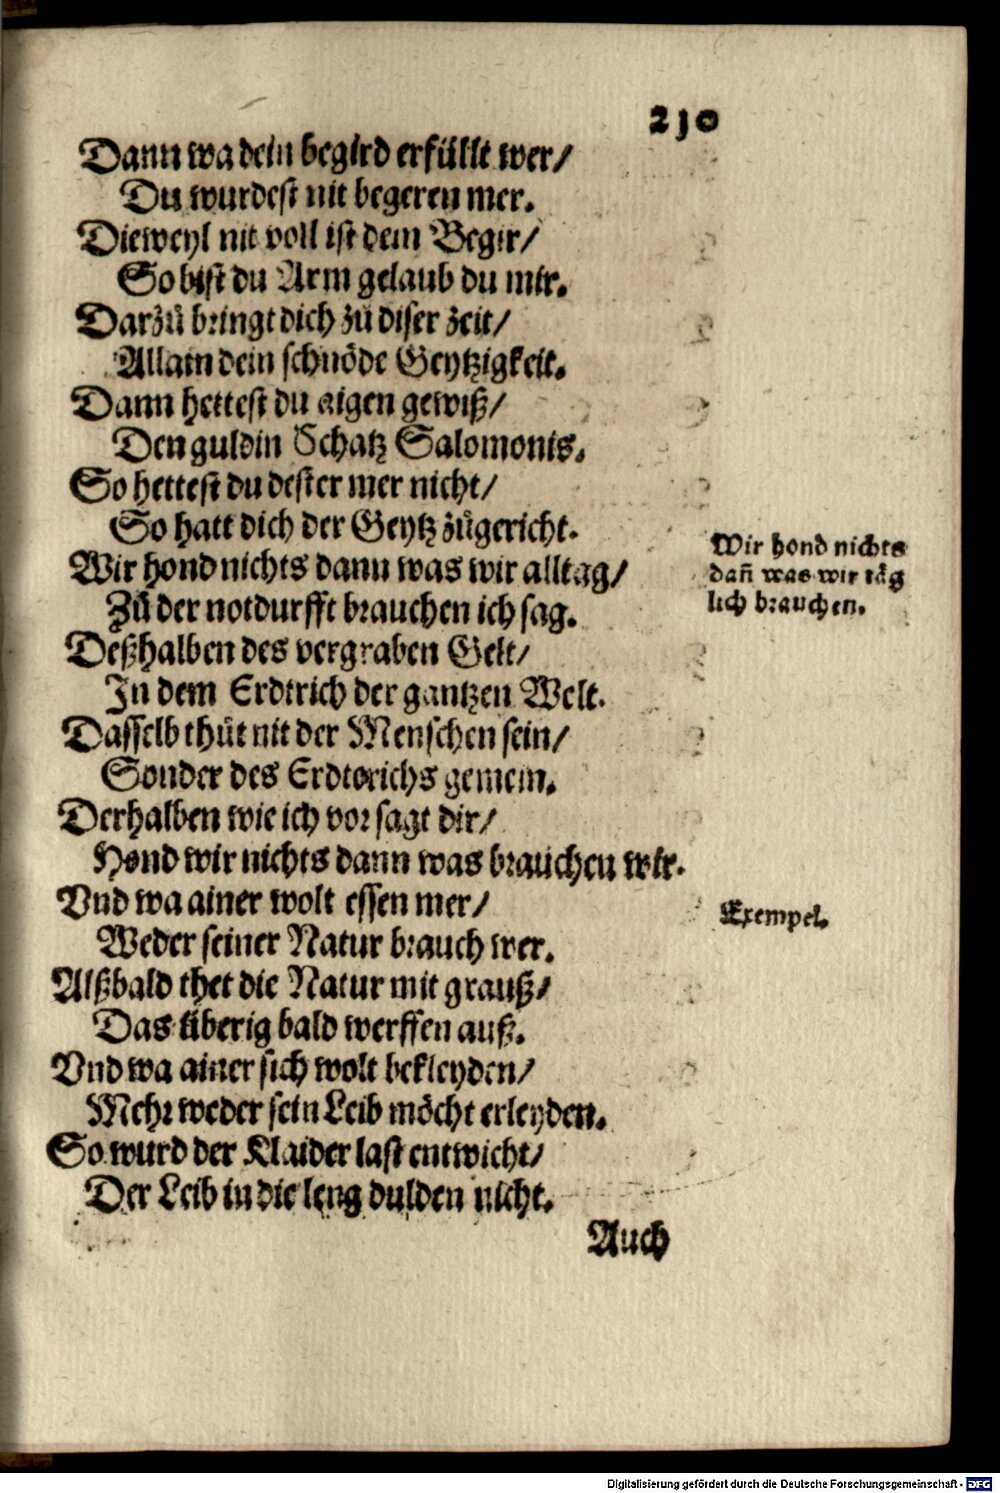 210
Dann wa dein begird erfüllt wer/
Du wurdest nit begeren mer.
Dieweyl nit voll ist dein Begir/
So bist du Arm gelaub du mir.
Darzů bringt dich zů diser zeit/
Allain dein schnöde Geytzigkeit.
Dann hettest du aigen gewiß/
Den guldin Schatz Salomonis.
So hettest du dester mer nicht/
So hatt dich der Geytz zůgericht.
Wir hond nichts dann was wir alltag/
Zů der notdurfft brauchen ich sag.
Deßhalben des vergraben Gelt/
In dem Erdtrich der gantzen Welt.
Dasselb thůt nit der Menschen sein/
Sonder des Erdtorichs gemein.
Derhalben wie ich vor sagt dir/
Hond wir nichts dann was brauchen wir.
Vnd wa ainer wolt essen mer/
Weder seiner Natur brauch wer.
Alßbald thet die Natur mit grauß/
Das überig bald werffen auß.
Vnd wa ainer sich wolt bekleyden/
Mehr weder sein Leib möcht erleyden.
So wurd der Klaider last entwicht/
Der Leib in die leng dulden nicht.
Auch
Wir hond nichts
dañ was wir täg
lich brauchen.
Exempel.
Digitalisierung gefördert durch die Deutsche Forschungsgemeinschaft - DFG